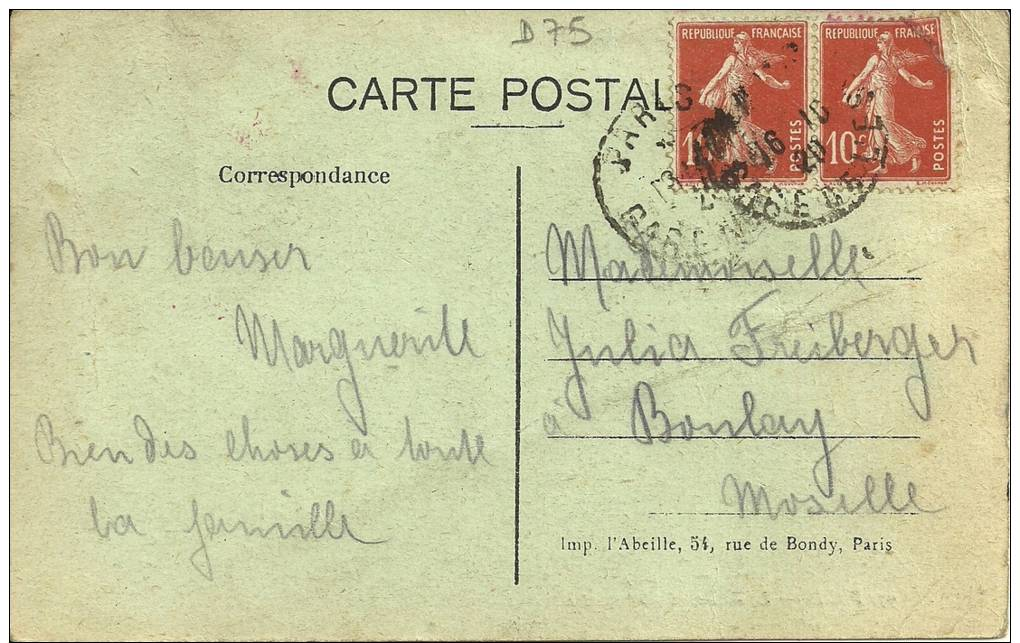 D 75
CARTE POSTALE
REPUBLIQUE FRANÇAISE
10c POSTES
REPUBLIQUE FRANÇAISE
10c POSTES
PARIS
GARE
Correspondance
Bon baiser
Marguerite
Bien des choses a toute
la famille
Mademoiselle
Julia Freiberger
à Boulay
Moselle
Imp. l'Abeille, 54, rue de Bondy, Paris